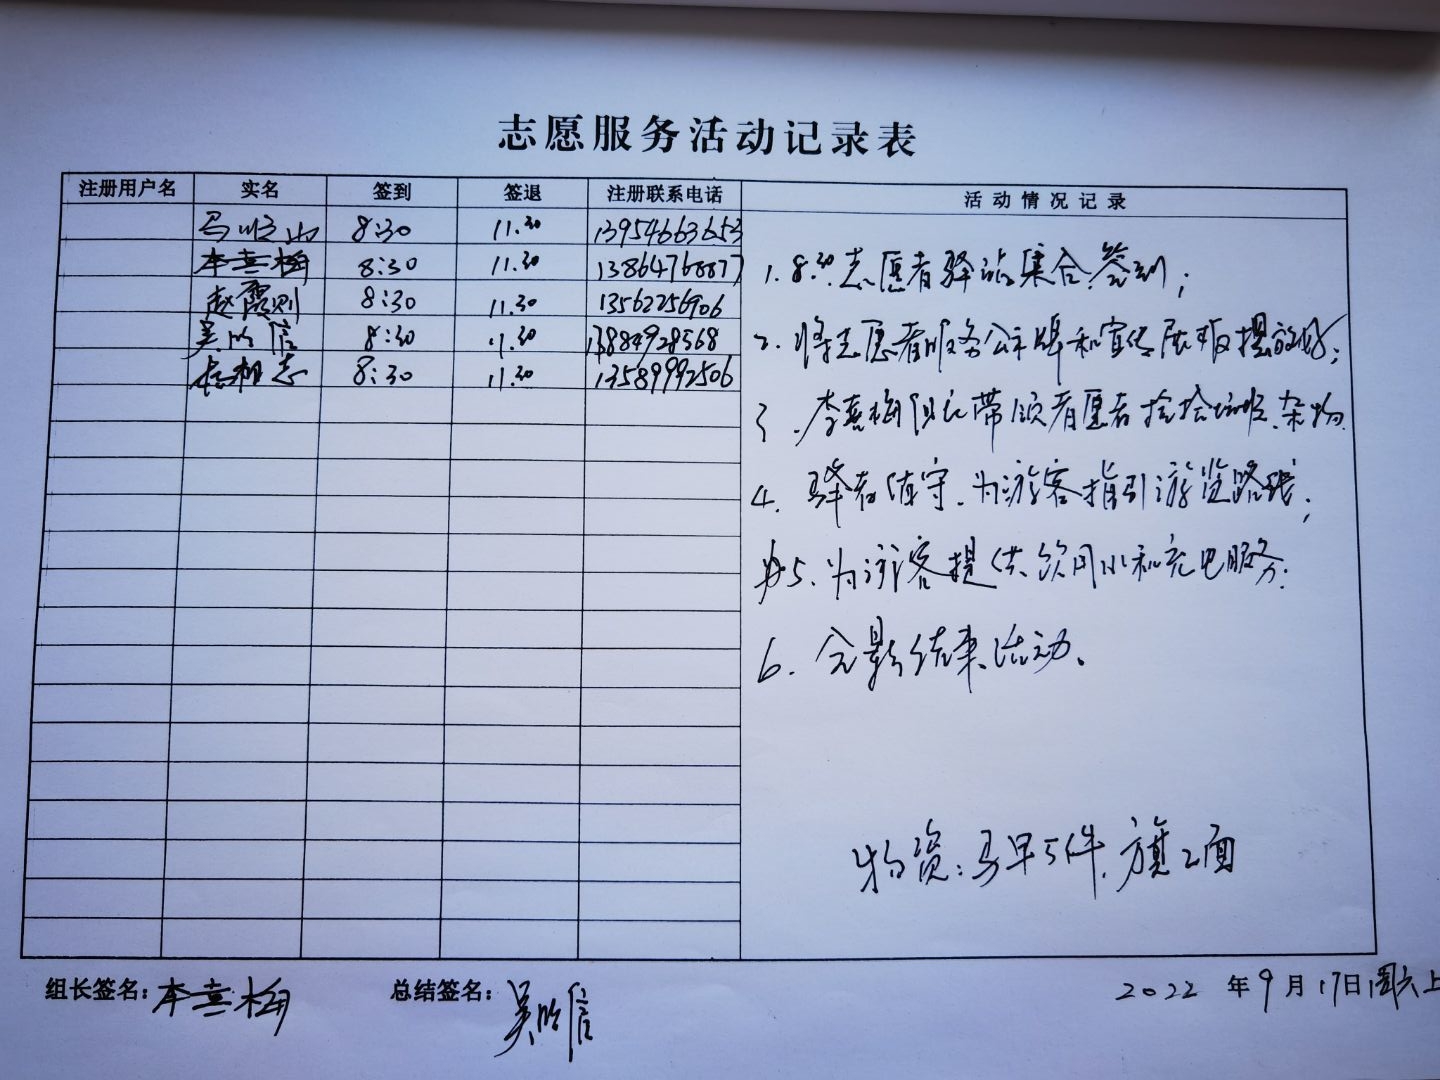 志愿服务活动记录表
注册用户名 实名 签到 签退 注册联系电话 活动情况记录
马顺山 8:30 11.30 13954663653
李喜梅 8:30 11.30 13864768877
赵霞则 8:30 11.30 13562256906
吴 信 8:30 11.30 13884928568
相志 8:30 11.30 13589992506
1. 8:30志愿者驿站集合签到;
2. 将志愿者服务公示牌和宣传展板摆放好;
3. 李喜梅 带领着愿者捡拾垃圾杂物.
4. 驿站值守.为游客指引游览路线;
5、为游客提供饮用水和充电服务.
6. 合影结束活动、
物资:马甲5件.旗2面
组长签名:李喜梅 总结签名:吴 信 2022 年9月17日周六上